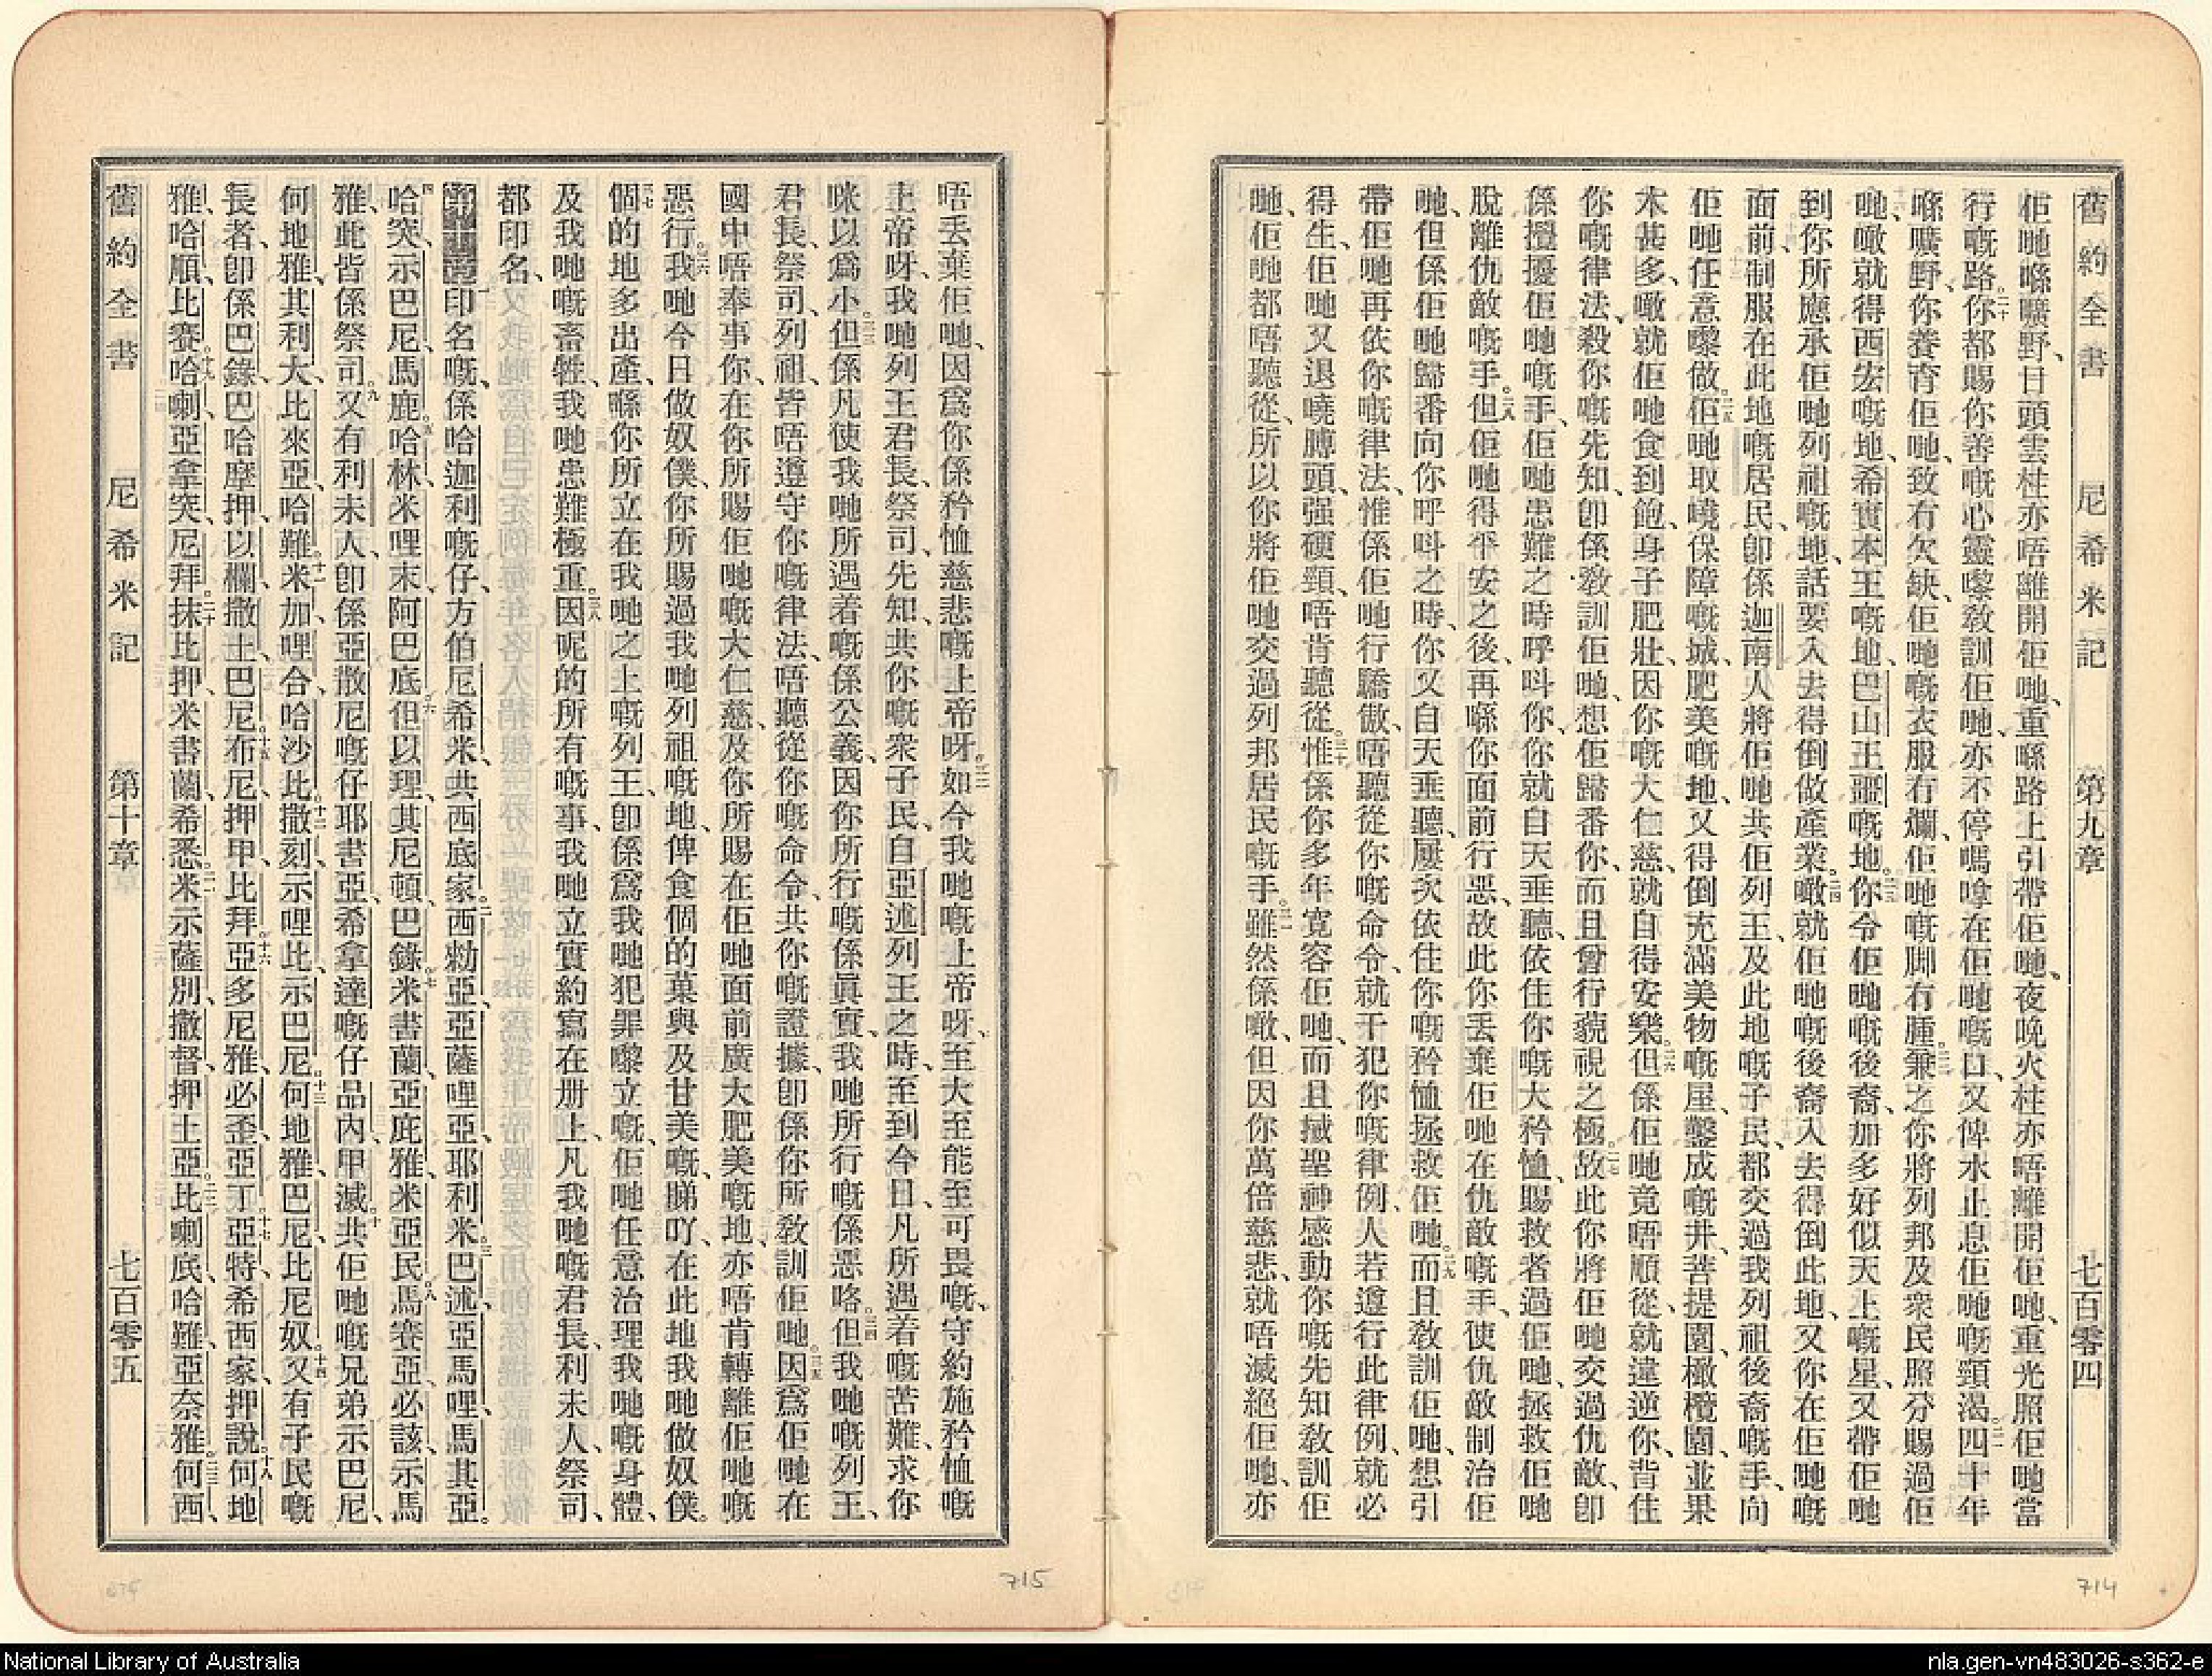 舊約全書 尼希米記 第九章 七百零四
佢哋喺曠野、日頭雲柱亦唔離開佢哋、重喺路上引帶佢哋、夜晚火柱亦唔離開佢哋、重光照佢哋當
行嘅路。二十你都賜你善嘅心靈嚟敎訓佢哋、亦不停嗎嗱在佢哋嘅口、又俾水止息佢哋嘅頸渴。二一四十年
喺曠野、你養育佢哋、致有欠缺、佢哋嘅衣服冇爛、佢哋嘅脚冇腫。二二兼之你將列邦及衆民照分賜過佢
哋、噉就得西宏嘅地、希實本王嘅地、巴山王噩嘅地。二三你令佢哋嘅後裔、加多好似天上嘅星、又帶佢哋
到你所應承佢哋列祖嘅地、話要入去得倒做產業。二四噉就佢哋嘅後裔入去得倒此地、又你在佢哋嘅
面前、制服在此地嘅居民、卽係迦南人、將佢哋共佢列王、及此地嘅子民、都交過我列祖後裔嘅手、向
佢哋任意嚟做。二五佢哋取嘵保障嘅城、肥美嘅地、又得倒充滿美物嘅屋、鑿成嘅井、菩提園、橄欖園、並果
木甚多、噉就佢哋食到飽、身子肥壯、因你嘅大仁慈、就自得安樂。二六但係佢哋竟唔順從、就違逆你、背住
你嘅律法、殺你嘅先知、卽係敎訓佢哋、想佢歸番你、而且曾行藐視之極。二七故此你將佢哋交過仇敵、卽
係攪擾佢哋嘅手、佢哋患難之時、呼呌你、你就自天垂聽、依住你嘅大矜恤、賜救者過佢哋、拯救佢哋
脫離仇敵嘅手。二八但佢哋得平安之後、再喺你面前行惡、故此你丟棄佢哋在仇敵嘅手、使仇敵制治佢
哋、但係佢哋歸番向你呼呌之時、你又自天垂聽、屢次依住你嘅矜恤拯救佢哋。二九而且敎訓佢哋、想引
帶佢哋再依你嘅律法、惟係佢哋行驕傲、唔聽從你嘅命令、就干犯你嘅律例、人若遵行此律例、就必
得生、佢哋又退嘵膊頭、强硬頸、唔肯聽從。三十惟係你多年寬容佢哋、而且㨢聖神感動你嘅先知敎訓佢
哋、佢哋都唔聽從、所以你將佢哋交過列邦居民嘅手。三一雖然係噉、但因你萬倍慈悲、就唔滅絕佢哋、亦
唔丟棄佢哋、因爲你係矜恤慈悲嘅上帝呀。三二如今我哋嘅上帝呀、至大至能至可畏嘅、守約施矜恤嘅
上帝呀、我哋列王君長、祭司、先知、共你嘅衆子民、自亞述列王之時、至到今日、凡所遇着嘅苦難、求你
咪以爲小。三三但係凡使我哋所遇着嘅、係公義、因你所行嘅係眞實、我哋所行嘅係惡咯。三四但我哋嘅列王、
君長、祭司、列祖、皆唔遵守你嘅律法、唔聽從你嘅命令、共你嘅證據、卽係你所敎訓佢哋。三五因爲佢哋在
國中唔奉事你、在你所賜佢哋嘅大仁慈、及你所賜在佢哋面前廣大肥美嘅地、亦唔肯轉離佢哋嘅
惡行。三六我哋今日做奴僕、你所賜過我哋列祖嘅地、俾食個的菓與及甘美嘅、睇吖、在此地我哋做奴僕。
三七個的地多出產、喺你所立在我哋之上嘅列王、卽係爲我哋犯罪嚟立嘅、佢哋任意治理我哋嘅身體、
及我哋嘅畜牲、我哋患難極重。三八因呢的所有嘅事、我哋立實約寫在册上、凡我哋嘅君長、利未人、祭司、
都印名、
第十章 印名嘅、係哈迦利嘅仔、方伯尼希米、共西底家。二西勑亞、亞薩哩亞、耶利米。三巴述、亞馬哩、馬其亞。
四哈突、示巴尼、馬鹿。五哈林、米哩末、阿巴底。六但以理、其尼頓、巴錄。七米書蘭、亞庇雅、米亞民。八馬賽亞、必該、示馬
雅、此皆係祭司。九又有利未人、卽係亞散尼嘅仔耶書亞、希拿達嘅仔品內、甲滅。十共佢哋嘅兄弟示巴尼、
何地雅、其利大、比來亞、哈難。十一米加、哩合、哈沙比。十二撒刻、示哩比、示巴尼。十三何地雅、巴尼、比尼奴。十四又有子民嘅
長者、卽係巴錄、巴哈摩押、以欄、撒土、巴尼。十五布尼、押甲、比拜。十六亞多尼雅、必歪、亞丁。十七亞特、希西家、押說。十八何地
雅、哈順、比賽。十九哈喇、亞拿突、尼拜。二十抹比押、米書蘭、希悉。二一米示薩別、撒督、押土亞。二二比喇底、哈難、亞奈雅。二三何西
舊約全書 尼希米記 第十章 七百零五
715
714
National Library of Australia
nla.gen-vn483026-s362-e